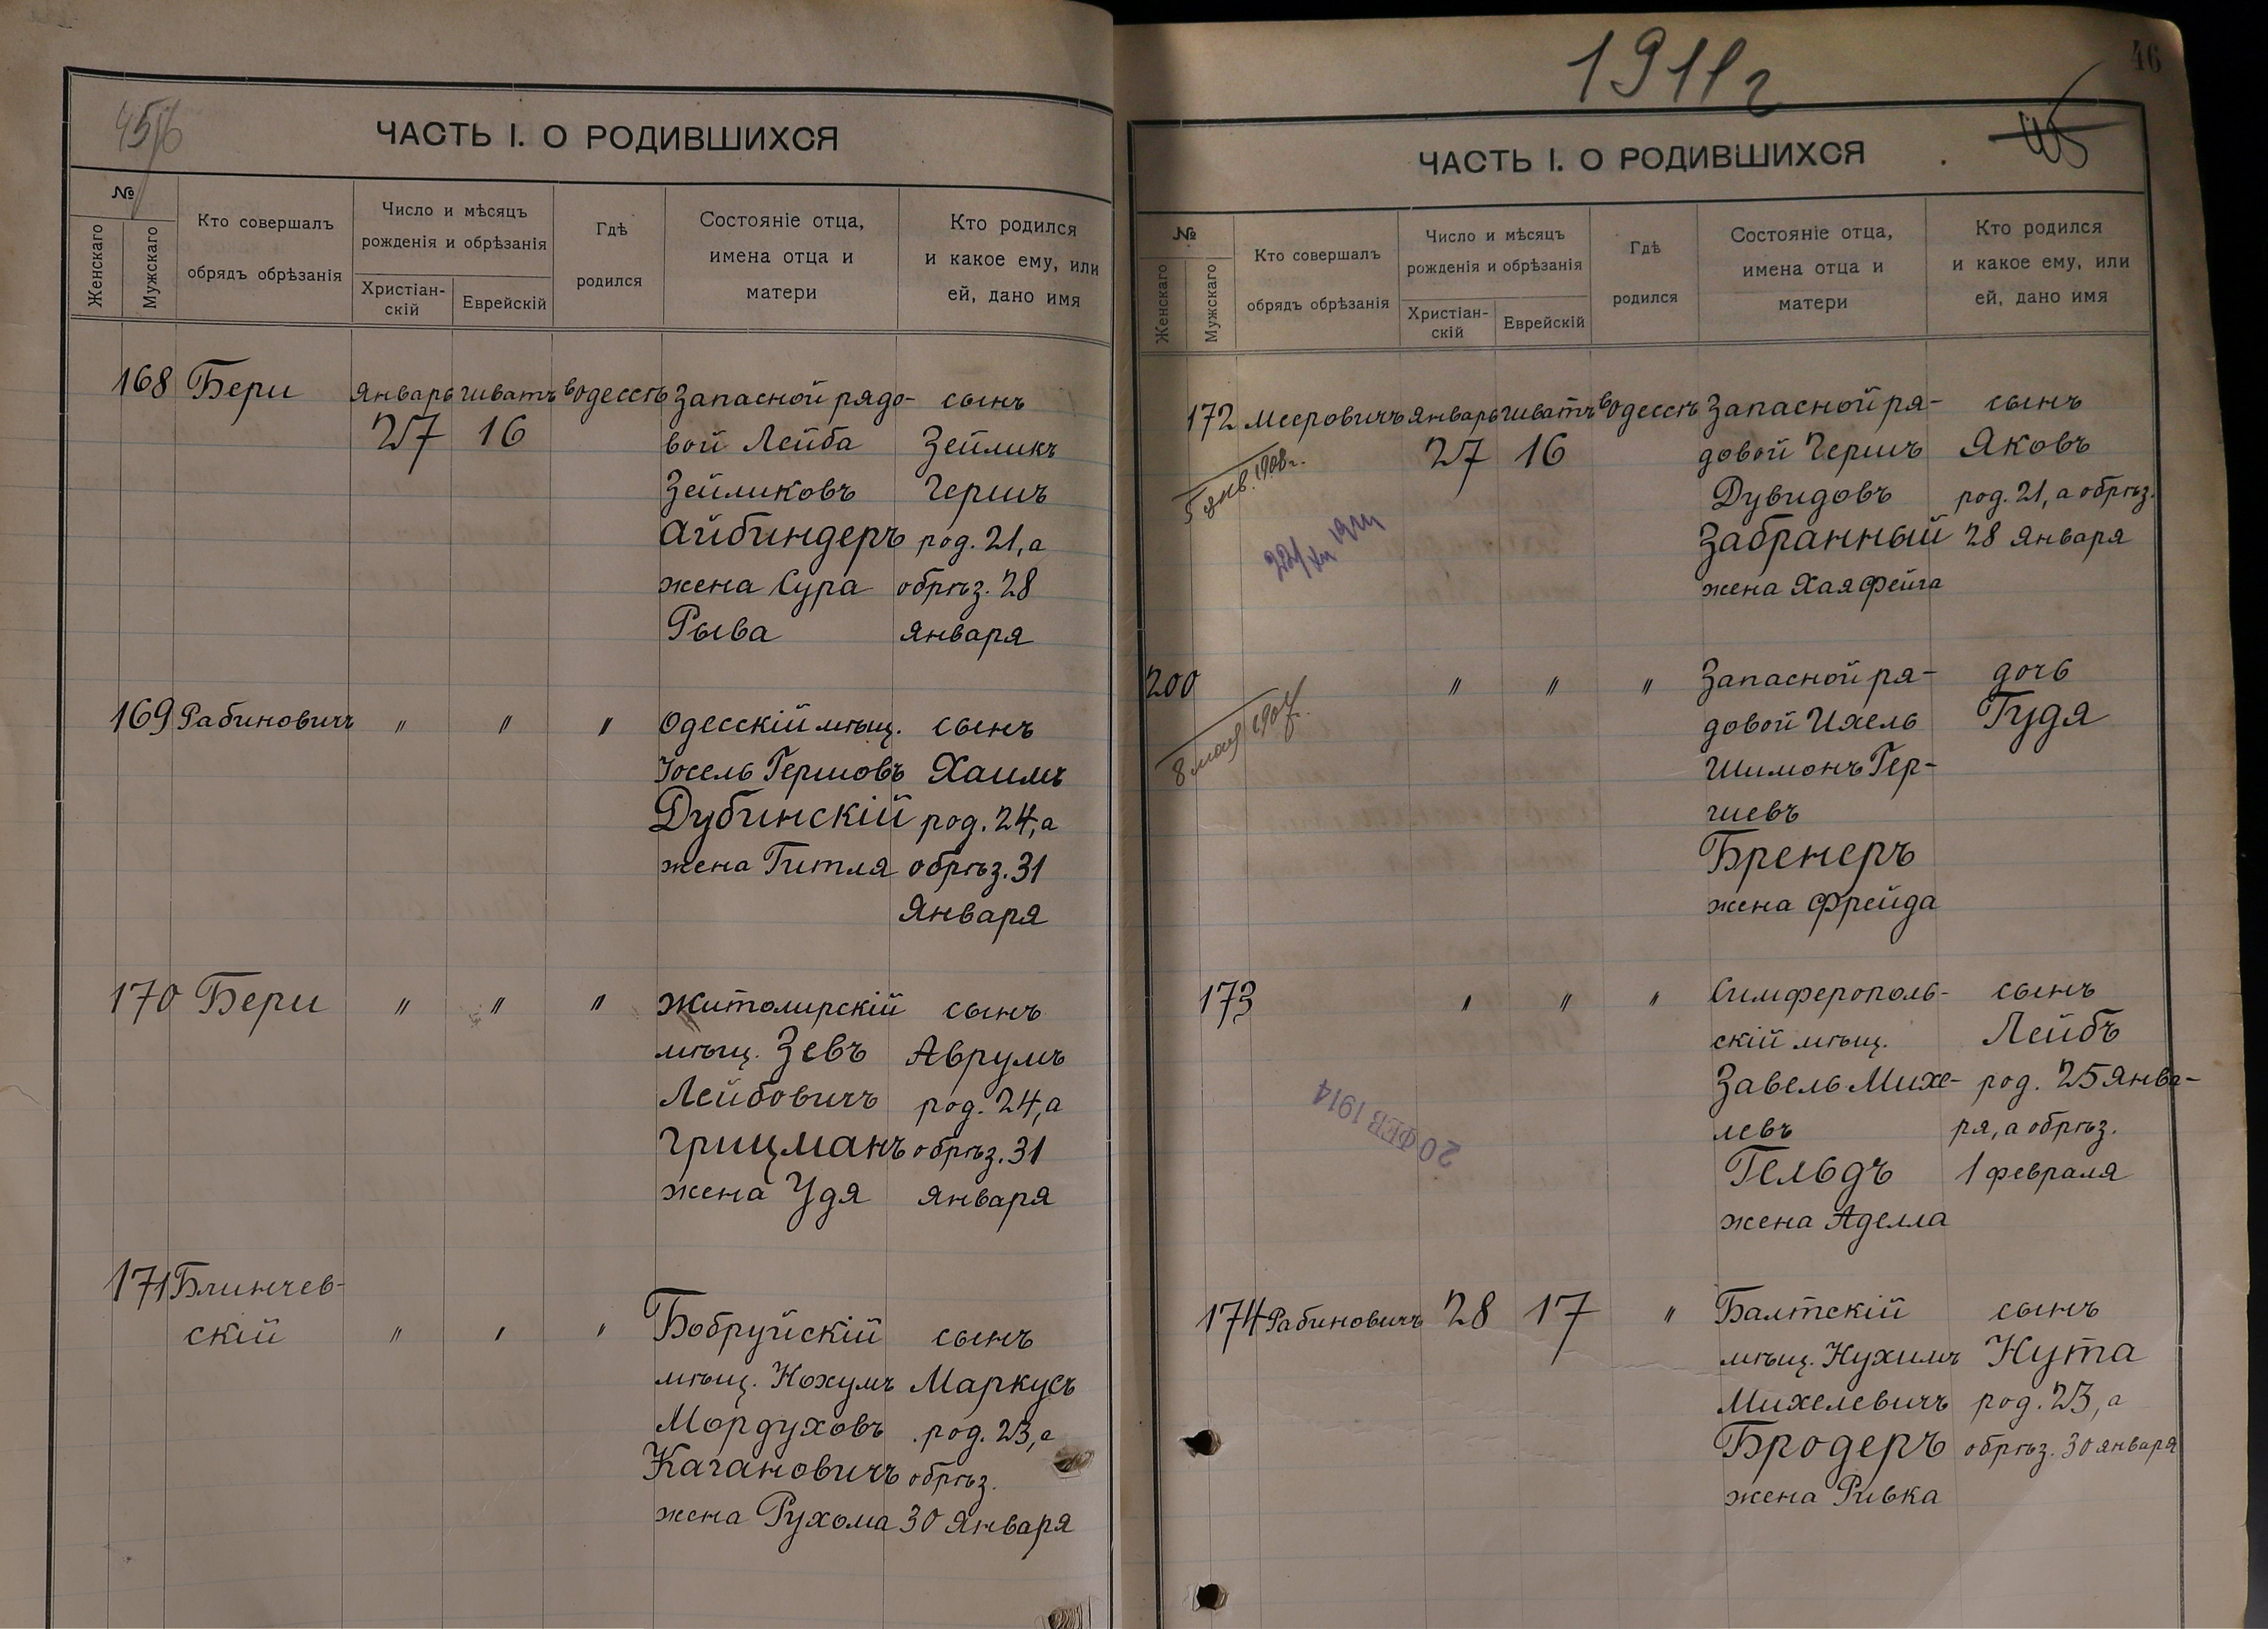 ЧАСТЬ I. О РОДИВШИХСЯ
№
Женскаго
Мужскаго
Кто совершалъ
обрядъ обрѣзанія
Число и мѣсяцъ
рожденія и обрѣзанія
Христіан-
скій
Еврейскій
Гдѣ
родился
Состояніе отца,
имена отца и
матери
Кто родился
и какое ему, или
ей, дано имя
168 Бери Январь Шватъ въ Одессѣ Запасной рядо- сынъ
27 16 вой Лейба Зейликъ
Зейликовъ Гершъ
Айбиндеръ род. 21, а
жена Сура обрѣз. 28
Рыва января
169 Рабиновичъ " " " Одесскій мѣщ. сынъ
Іосель Гершовъ Хаимъ
Дубинскій род. 24, а
жена Гитля обрѣз. 31
Января
170 Бери " " " Житомирскій сынъ
мѣщ. Зевъ Аврумъ
Лейбовичъ род. 24, а
Грицманъ обрѣз. 31
жена Удя января
171 Блинчев-
скій " " " Бобруйскій сынъ
мѣщ. Нохумъ Маркусъ
Мордуховъ род. 23, а
Кагановичъ обрѣз.
жена Рухома 30 Января
1911 г
46
45
ЧАСТЬ I. О РОДИВШИХСЯ
№
Женскаго
Мужскаго
Кто совершалъ
обрядъ обрѣзанія
Число и мѣсяцъ
рожденія и обрѣзанія
Христіан-
скій
Еврейскій
Гдѣ
родился
Состояніе отца,
имена отца и
матери
Кто родился
и какое ему, или
ей, дано имя
172 Мееровичъ Январь Шватъ въ Одессѣ Запасной ря- сынъ
27 16 довой Гершъ Яковъ
Дувидовъ род. 21, а обрѣз.
Забранный 28 Января
жена Хая Фейга
5 янв. 1908 г.
200 " " " Запасной ря- дочь
довой Ихель Гудя
Шимонъ Гер-
шевъ
Бренеръ
жена Фрейда
8 мая
173 " " " Симферополь- сынъ
скій мѣщ. Лейбъ
Завель Михе- род. 25 Янва-
левъ ря, а обрѣз.
Гельдъ 1 февраля
жена Аделла
20 ФЕВ 1914
174 Рабиновичъ 28 17 " Балтскій сынъ
мѣщ. Нухимъ Нута
Михелевичъ род. 23, а
Бродеръ обрѣз. 30 января
жена Ривка